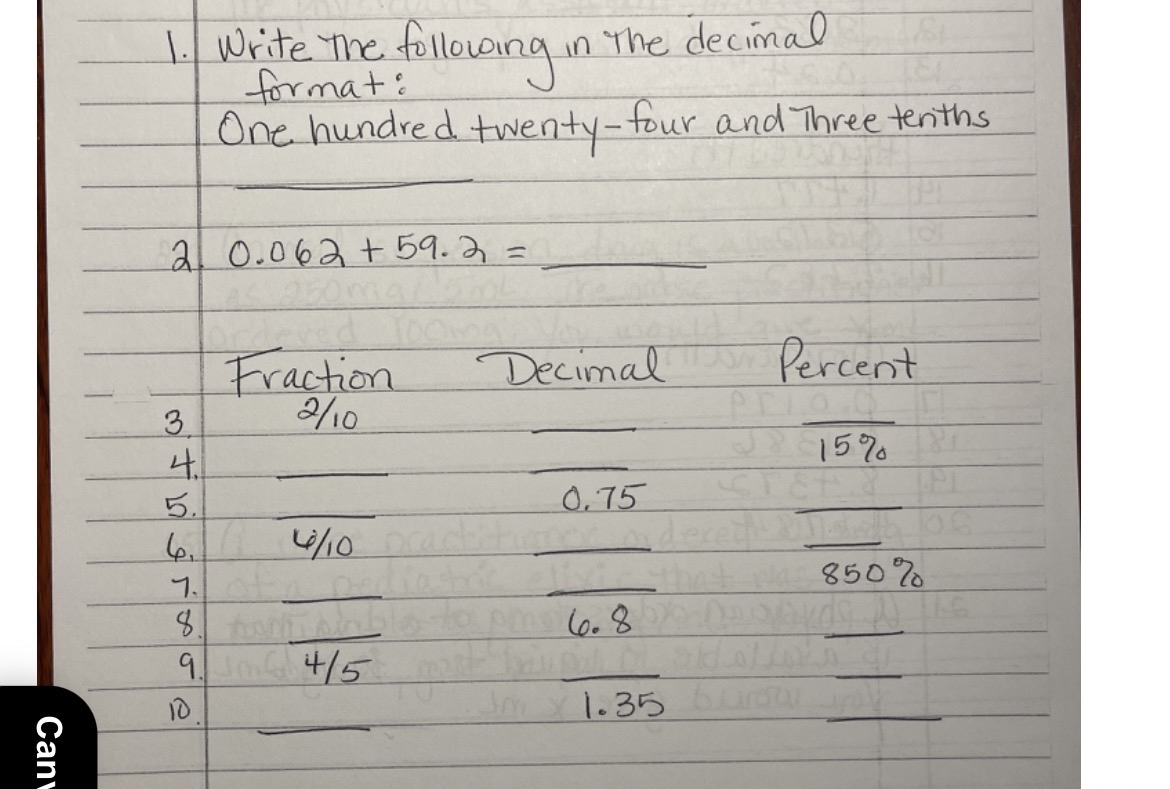 1. Write the following in the decimal
format:
One hundred twenty-four and three tenths
2. 0.062 + 59.2 =
Fraction Decimal Percent
3. 2/10
4. 15%
5. 0.75
6. /10
7. 850%
8. 6.8
9. 4/5
10. 1.35
Can